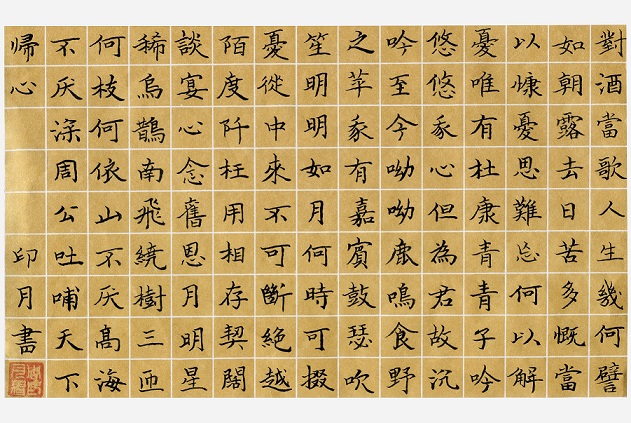 對酒當歌人生幾何譬
如朝露去日苦多慨當
以慷憂思難忘何以解
憂唯有杜康青青子吟
悠悠我心但為君故沉
吟至今呦呦鹿鳴食野
之苹我有嘉賓鼓瑟吹
笙明明如月何時可掇
憂從中來不可斷絕越
陌度阡枉用相存契闊
談宴心念舊恩月明星
稀烏鵲南飛繞樹三匝
何枝何依山不厌高海
不厌深周公吐哺天下
歸心
印月書